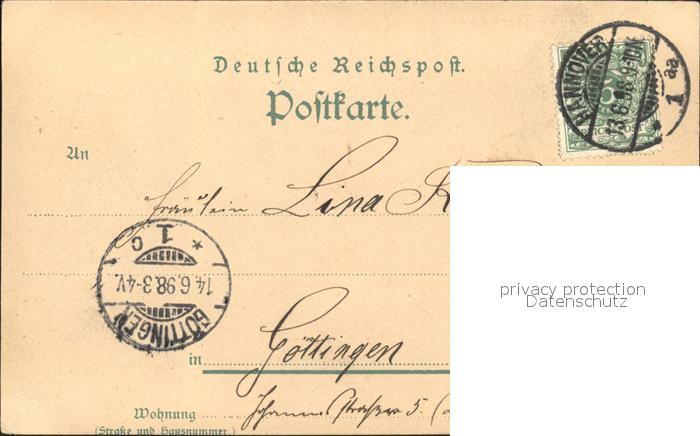 Deutsche Reichspost.
Postkarte.
HANNOVER
13.6.98.9-10N
1 aa
5
REICHSPOST
An
Fräulein Lina
* 1 c
14.6.98.3-4V.
GÖTTINGEN
privacy protection
Datenschutz
in Göttingen
Wohnung
(Straße und Hausnummer) Strasse 5. (